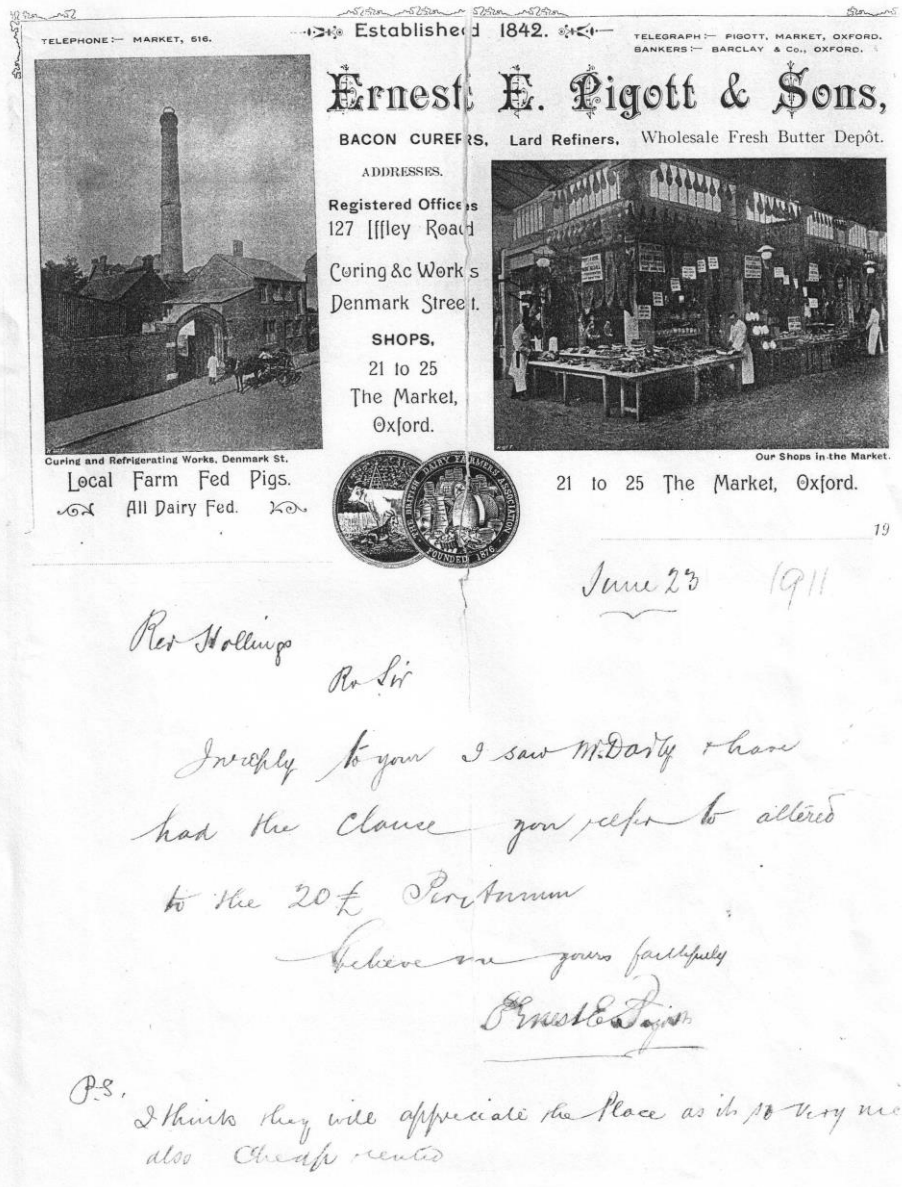 TELEPHONE:— MARKET, 616.
Established 1842.
TELEGRAPH:— PIGOTT, MARKET, OXFORD.
BANKERS:— BARCLAY & Co., OXFORD.
Ernest E. Pigott & Sons,
BACON CURERS, Lard Refiners, Wholesale Fresh Butter Depôt.
ADDRESSES.
Registered Offices
127 Iffley Road
Curing &c Works
Denmark Street.
SHOPS,
21 to 25
The Market,
Oxford.
Curing and Refrigerating Works, Denmark St.
Local Farm Fed Pigs.
All Dairy Fed.
Our Shops in the Market.
21 to 25 The Market, Oxford.
THE BRITISH DAIRY FARMERS ASSOCIATION
FOUNDED 1876
19
June 23 1911
Rev Hollings
Sir
In reply to your I saw & have
had the Clause you refer to altered
to the 20 £ Per Annum
believe me yours faithfully
Ernest E Pigott
P.S.
I think they will appreciate the Place as its so very
also Cheap rented